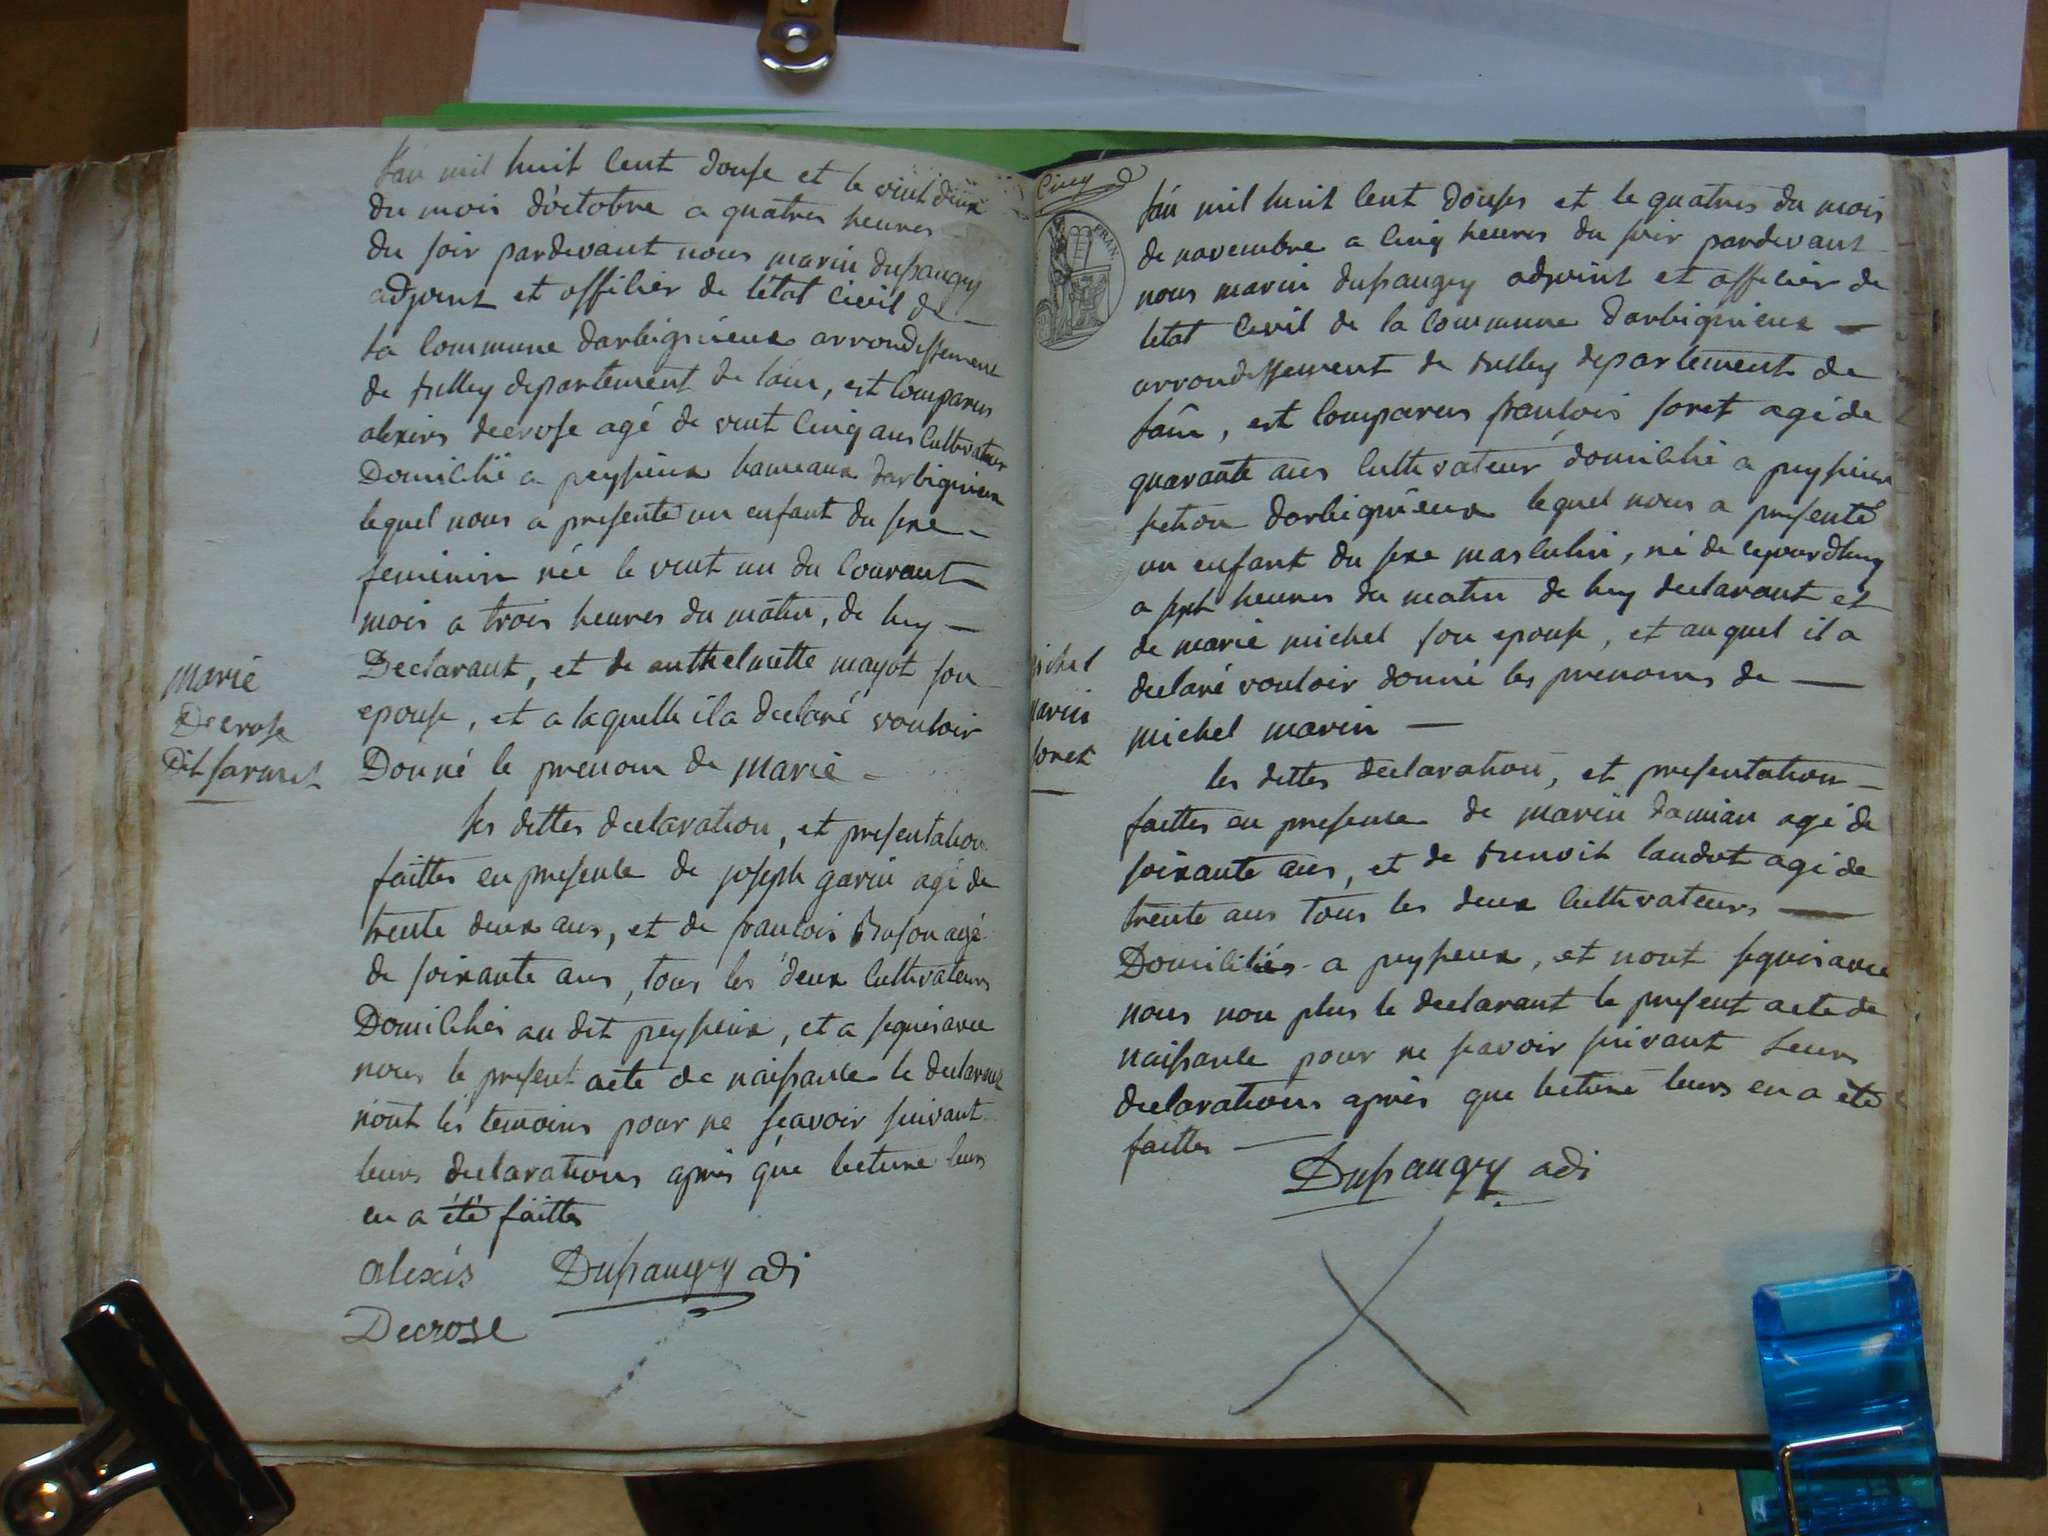 L'an mil huit cent douse et le vint deux
du mois d'octobre a quatres heures
du soir pardevant nous marin dussaugey
adjoint et officier de l'état civil de
la commune darbignieux arrondissement
de belley departement de lain, est comparus
alexis decrose agé de vint cinq ans cultivateur
Domicilié a peyzieux hameaux darbignieux
lequel nous a presenté un enfant du sexe
feminin née le vint un du courant
mois a trois heures du matin, de luy
Declarant, et de anthelmette mayot son
epouse, et a laquelle il a declaré vouloir
Donné le prenom de marie
marie
Decrose
Dit
les dittes declaration, et presentation
faittes en presence de joseph garin agé de
trente deux ans, et de francois Buson agé
de soixante ans, tous les deux cultivateurs
Domiciliés au dit peyzieux, et a signés avec
nous le present acte de naissance le declarant
n'ont les temoins pour ne scavoir suivant
leurs declarations après que lecture leurs
en a été faittes
alexis Dussaugey adj
Decrose
Cinq
FRAN.
L'an mil huit cent douses et le quatres du mois
de novembre a cinq heures du soir pardevant
nous marin dussaugey adjoint et officier de
letat civil de la commune darbignieux
arrondissement de belley departement de
lain, est comparus francois soret agé de
quarante ans cultivateur domicilié a peyzieux
section darbignieux lequel nous a presenté
un enfant du sexe masculin, né de cejourdhuy
a sept heures du matin de luy declarant et
de marie michel son epouse, et auquel il a
declaré vouloir donné les prenoms de
michel marin
michel
marin
soret
les dittes declaration, et presentation
faittes en presence de marin damian agé de
soixante ans, et de benoit landot agé de
trente ans tous les deux cultivateurs
Domiciliés a peyzieux, et nont signés avec
nous non plus le declarant le present acte de
naissance pour ne scavoir suivant leurs
declarations après que lecture leurs en a été
faittes
Dussaugey adj